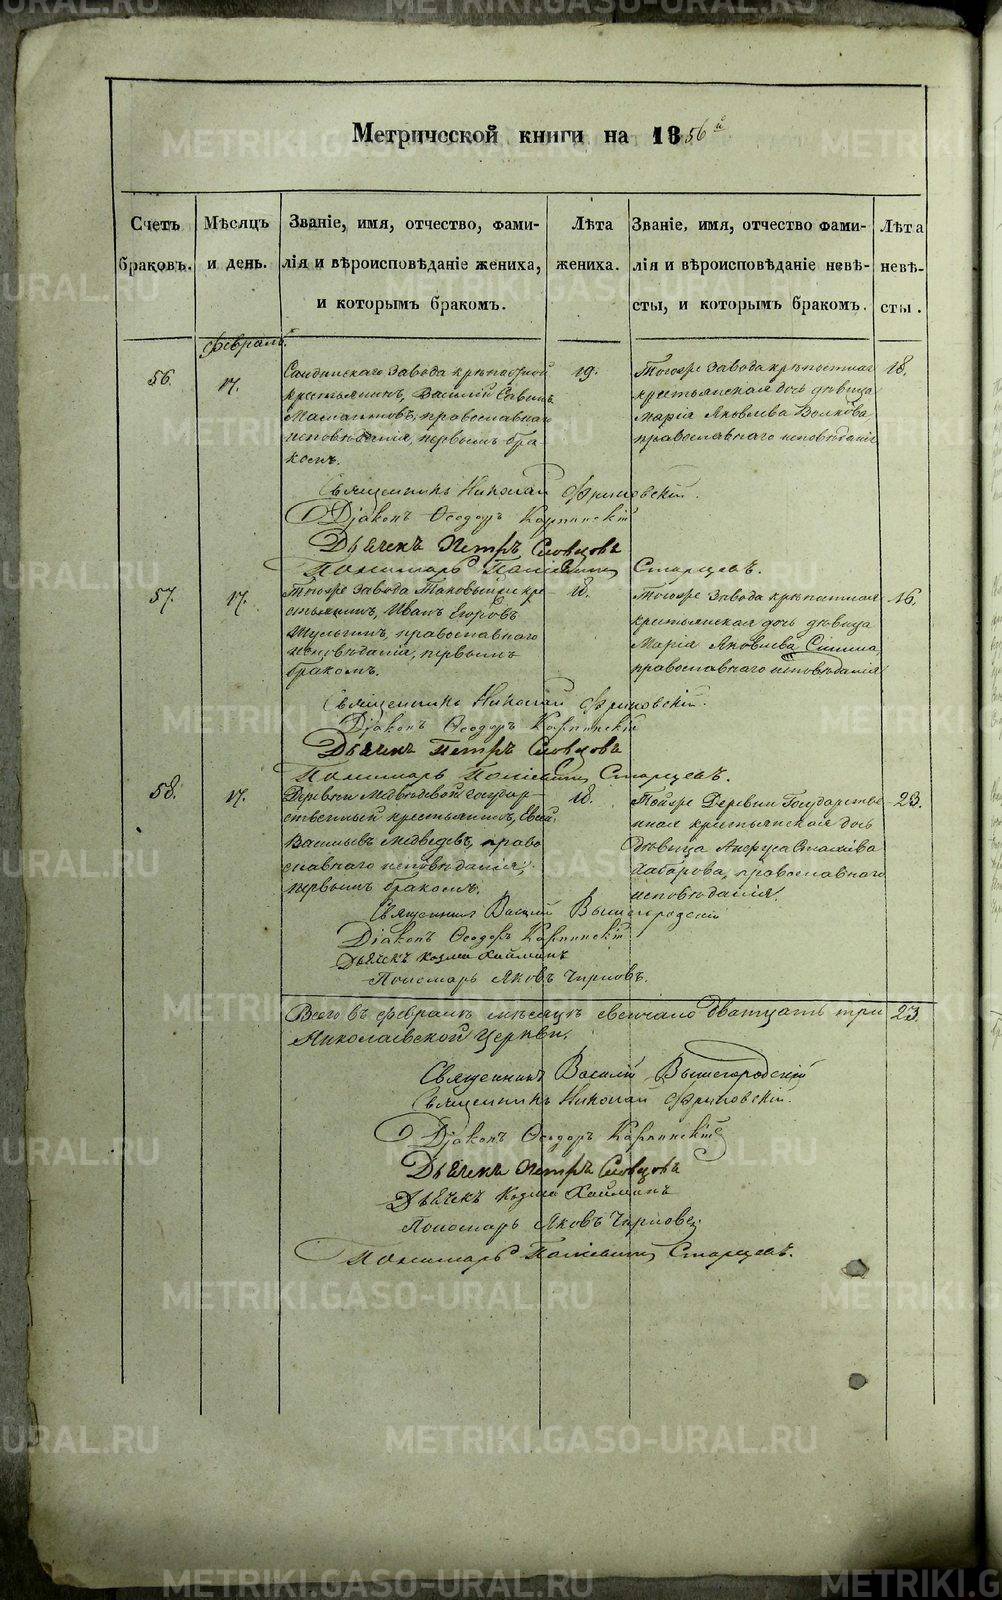 Метрической книги на 1856й
Счетъ браковъ.
Мѣсяцъ и день.
Званіе, имя, отчество, фами-
лія и вѣроисповѣданіе жениха,
и которымъ бракомъ.
Лѣта жениха.
Званіе, имя, отчество фами-
лія и вѣроисповѣданіе невѣ-
сты, и которымъ бракомъ.
Лѣта невѣ-
сты.
Февраль
56.
17.
завода крѣпостной
крестьянинъ, Василій Савинъ
православнаго
исповѣданія, первымъ бра
комъ.
19.
Тогоже завода крѣпостная
крестьянская дочь дѣвица
Марія Яковлева Волкова
православнаго исповѣданія
18.
Священникъ Николай
Діаконъ Ѳеодоръ Карпинскій
Дьячекъ Петръ Словцовъ
Пономарь Старцевъ.
57.
17.
Тогоже завода Таковыйже кре
стьянинъ, Иванъ Егоровъ
Шульгинъ, православнаго
исповѣданія, первымъ
бракомъ.
18.
Тогоже завода крѣпостная
крестьянская дочь дѣвица
Марія Яковлева
православнаго исповѣданія
16.
Священникъ Николай
Діаконъ Ѳеодоръ Карпинскій
Дьячекъ Петръ Словцовъ
Пономарь Старцевъ.
58.
17.
Деревни Медвѣдевой Государ-
ственный крестьянинъ,
Васильевъ Медведевъ, право
славнаго исповѣданія,
первымъ бракомъ.
18.
Тойже Деревни Государстве
нная крестьянская дочь
дѣвица
Хабарова, православнаго
исповѣданія.
23.
Священникъ Василій Вышегородскій
Діаконъ Ѳеодоръ Карпинскій
Дьячекъ Козма
Пономарь Яковъ Чирковъ.
Всего въ февралѣ мѣсяцѣ свенчано дватцать три
23.
Николаевской Церкви.
Священникъ Василій Вышегородскій
Священникъ Николай
Діаконъ Ѳеодоръ Карпинскій
Дьячекъ Петръ Словцовъ
Дьячекъ Козма
Пономарь Яковъ Чирковъ
Пономарь Старцевъ.
METRIKI.GASO-URAL.RU